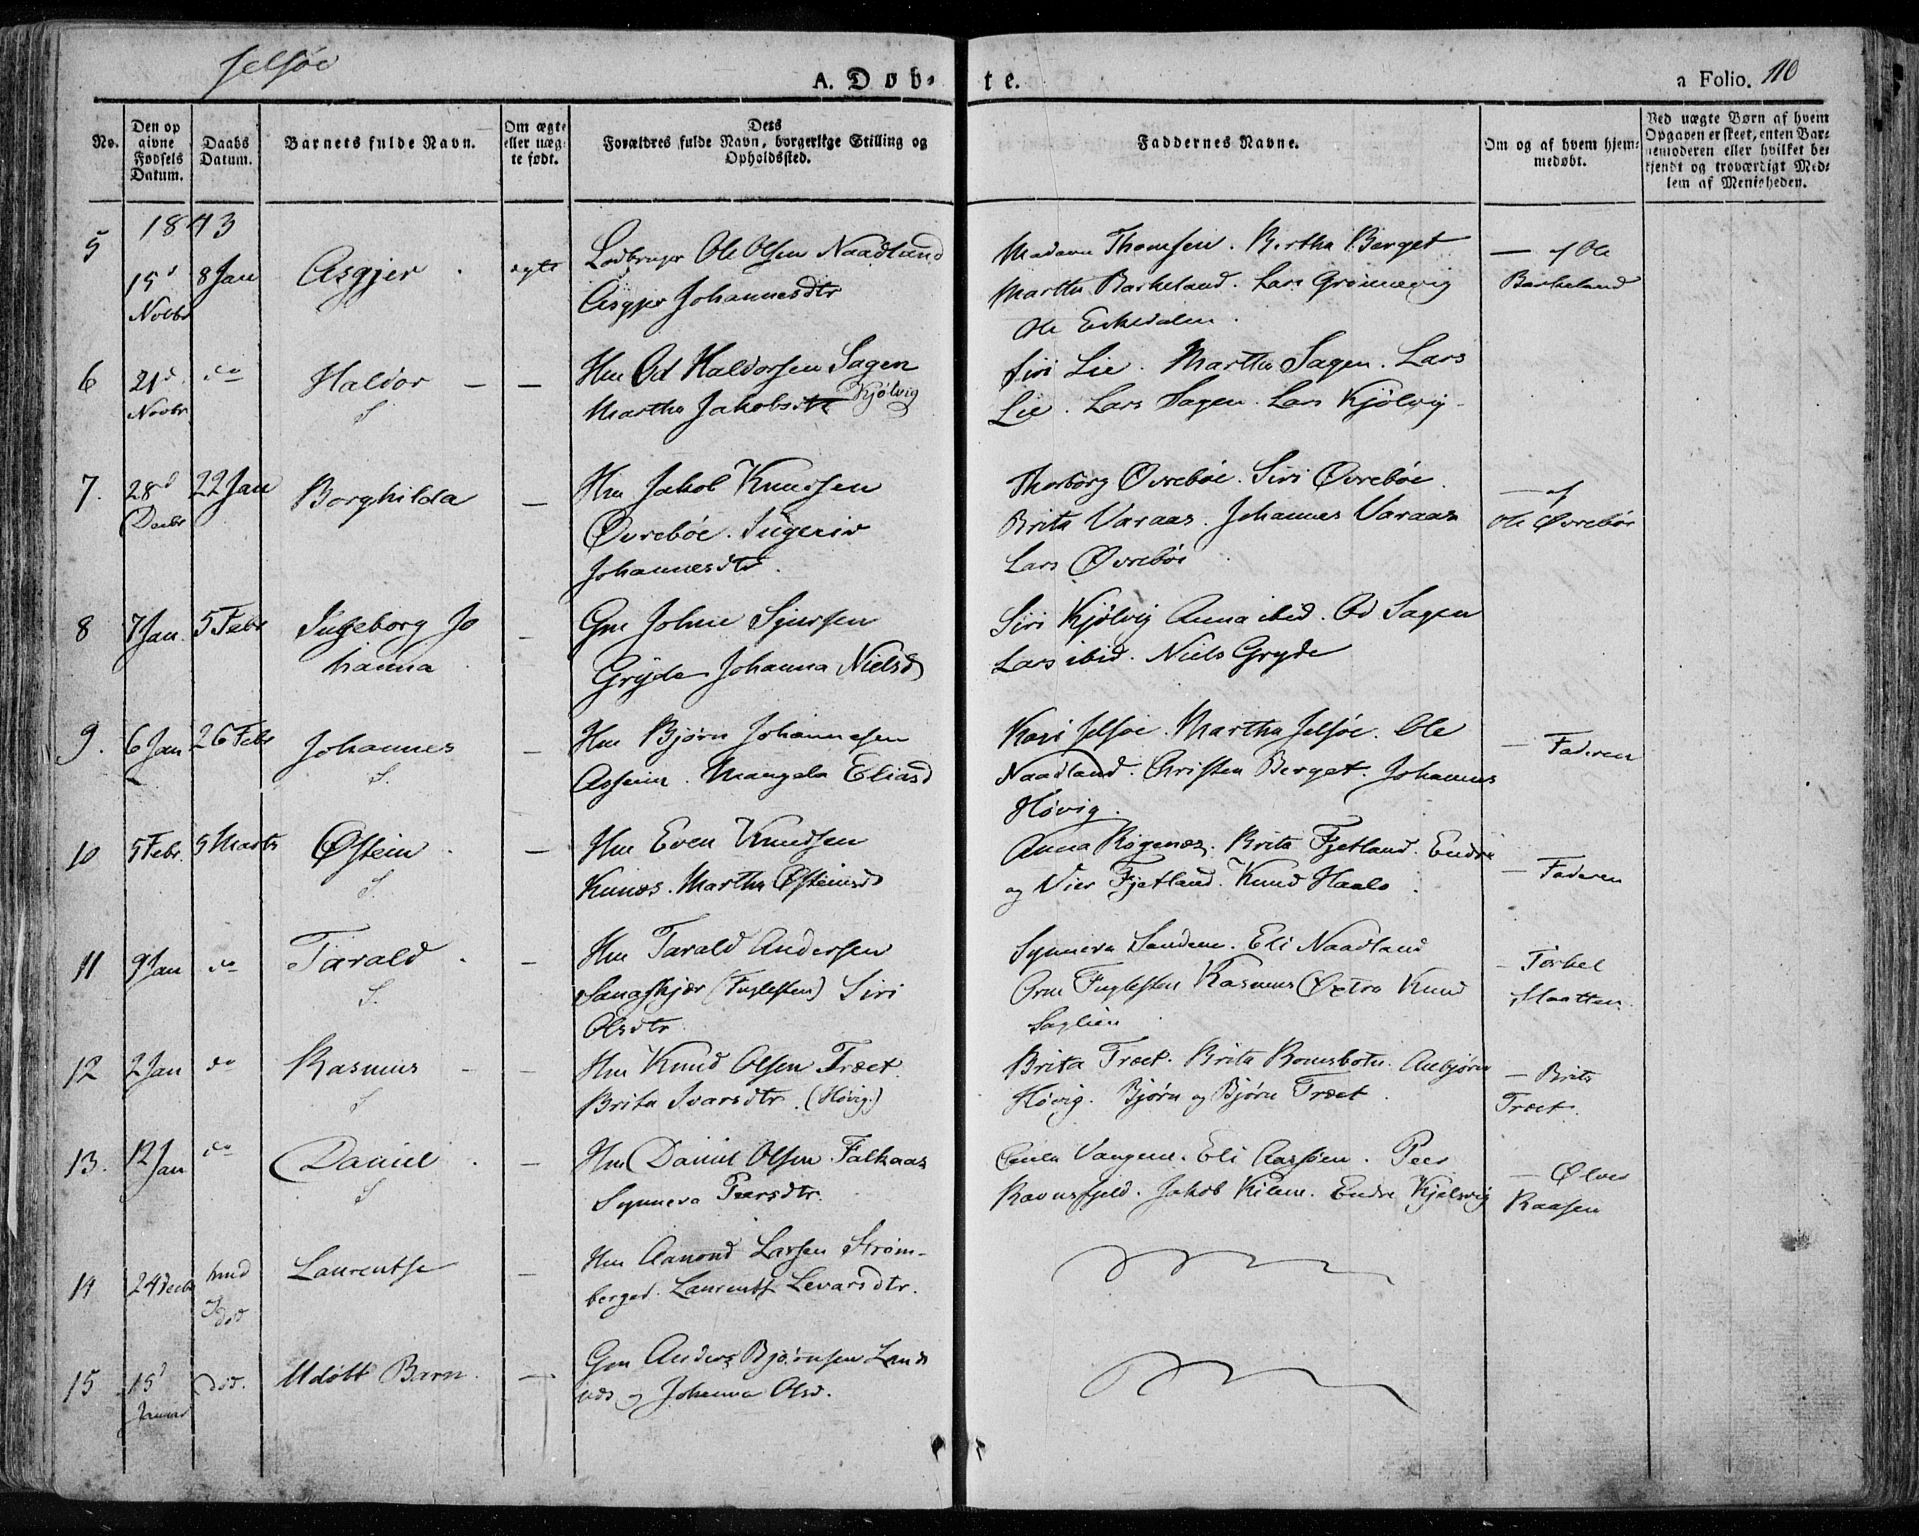 Jelsøe
A. Døb- te. a Folio. 110
No.
Den op
givne
Fødsels
Datum.
Daabs
Datum.
Barnets fulde Navn.
Om ægte
eller uæg-
te født.
Dets
Forældres fulde Navn, borgerlige Stilling og
Opholdssted.
Faddernes Navne.
Om og af hvem hjem-
medøbt.
Ved uægte Børn af hvem
Opgaven er skeet, enten Bar-
nemoderen eller hvilket be-
kjendt og troværdigt Med-
lem af Menigheden.
1843
5 15d Novbr 8 Jan Asgjer ægte
Ole Olsen Naadland
Asgjer Johannesdtr
Madam Thomsen. Bertha Berget
Martha Barkeland. Lars Grønnevig
Ole Eskedalen.
— af Ole
Barkeland
6 21d Novbr do Haldor — —
S
Hm Od Haldorsen Sagen
Martha Jakobsdtr Kjølvig
Siri Lie. Martha Sagen. Lars
Lie. Lars Sagen. Lars Kjølvig
7. 28d Decbr 22 Jan Borghilda —
Hm Jakob Knudsen
Øvrebøe. Ingeriv
Johannesdtr.
Thorborg Øvrebøe. Siri Øvrebøe.
Brita Varaas. Johannes Varaas
Lars Øvrebøe
— af
Ole Øvrebøe
8 7 Jan. 5 Febr Ingeborg Jo
hanna —
Gm Johne Sjursen
Gryde Johanna Nielsd
Siri Kjølvig Anna ibid. Od Sagen
Lars ibid. Niels Gryde
9. 6 Jan 26 Febr Johannes —
S.
Hm Bjørn Johannesen
Asheim. Mangela Eliasd
Kari Jelsøe. Martha Jelsøe. Ole
Naadland. Christen Berget. Johannes
Høvig.
— Faderen
10 5 Febr. 5 Marts Østein —
S.
Hm Even Knudsen
Martha Østeinsd
Anna Røgenæs. Brita Fjetland. Endre
og Vier Fjetland. Knud Haalo.
— Faderen
11 9 Jan do Tarald —
S.
Hm Tarald Andersen
(Fuglesten) Siri
Olsdtr.
Synneva Sandem. Eli Naadland
Arne Fuglesten Rasmus Øxtra Knud
Saglien
— Torkel
12 2 Jan do Rasmus — —
S
Hm Knud Olsen Træet.
Brita Ivarsdtr. (Høvig.)
Brita Træet. Brita Romsbotn. Anbjørn
Høvig. Bjørn og Bjørn Træet.
— Brite
Træet.
13. 12 Jan do Daniel —
S
Hm Daniel Olsen Falkaas
Synneva Peersdtr.
Vangene. Eli Aassen. Peer
Ravnsfjeld. Jakob Kilen. Endre Kjølvig
— Ølver
Raasen
14 24 Decbr hmd
død Laurentse —
Hm Aamond Larsen Strøm-
berget. Laurentse Levarsdtr.
15 15d Januar død. Udøbt Barn. —
Gm Anders Bjørnsen Land
næs og Johanna Olsd.